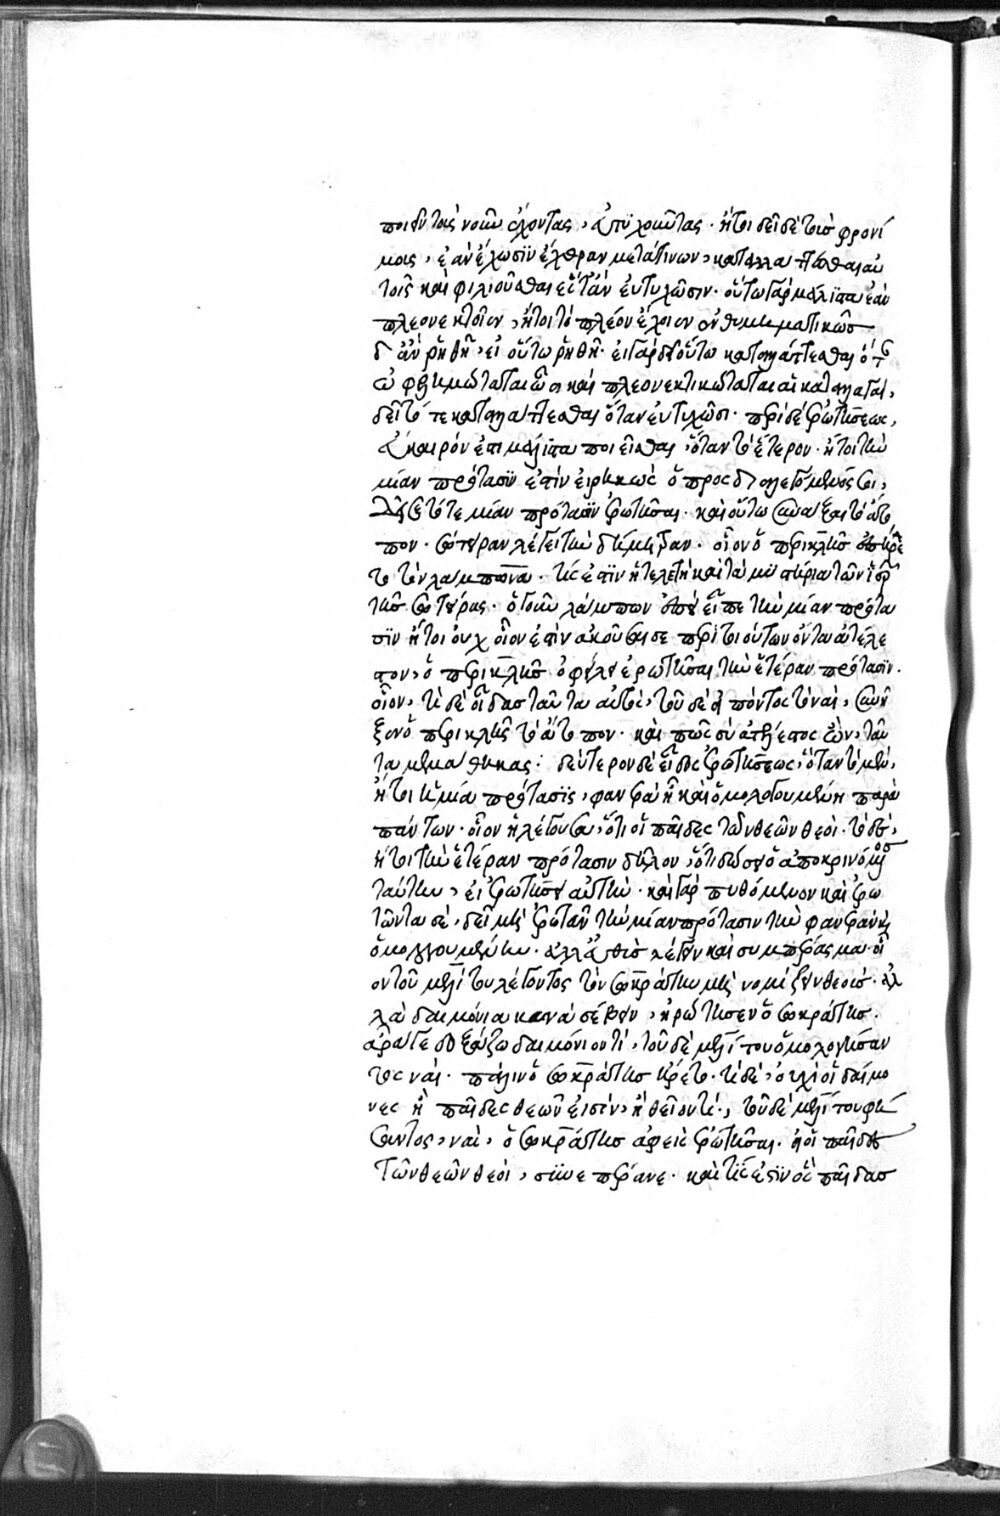 ποιεῖν τοὺς νοῦν ἔχοντας, εὐτυχοῦντας. ἤτοι δεῖ δὲ τοῖς φρονί
μοις, ἐὰν ἔχωσιν ἔχθραν μετά τινων, καταλλάττεσθαι αὐ
τοῖς καὶ φιλιοῦσθαι ὅταν εὐτυχῶσιν. οὕτω γὰρ μάλιστα ἐὰν
πλεονεκτοῖεν, ἤτοι τὸ πλέον ἔχοιεν ἐνθυμηματικῶς
δ' ἂν ῥηθῇ, εἰ οὕτω ῥηθῇ. εἰ γὰρ δεῖ οὕτω καταλλάττεσθαι ὅτε
ὠφελιμώταται ὦσι καὶ πλεονεκτικώταται αἱ καταλλαγαί,
δεῖ τότε καταλλάττεσθαι ὅταν εὐτυχῶσι. περὶ δὲ ἐρωτήσεως,
εὔκαιρόν ἐστι μάλιστα ποιεῖσθαι, ὅταν τὸ ἕτερον. ἤτοι τὴν
μίαν πρότασιν ἐστὶν εἰρηκὼς ὁ προσδιαλεγόμενός σοι,
τότε μίαν πρότασιν ἐρωτῆσαι. καὶ οὕτω συνάξαι τὸ ἄτο
πον. σωτῆραν λέγει τὴν δήμητραν. οἷον ὁ περικλῆς ἐπήρε
το τὸν λάμπωνα. τίς ἐστιν ἡ τελετὴ καὶ τὰ μυστήρια τῶν ἱερῶν
τῆς σωτήρας. ὁ γοῦν λάμπων εἶπε τὴν μίαν πρότα
σιν ἤτοι οὐχ οἷόν ἐστιν ἀκοῦσαί σε περὶ τούτων ὄντα ἀτέλε
στον, ὁ περικλῆς ὀφείλει ἐρωτῆσαι τὴν ἑτέραν πρότασιν.
οἷον, τί δὲ οἶδας ταῦτα αὐτός, τοῦ δὲ εἰπόντος τὸ ναί, συνῆ
ξεν ὁ περικλῆς τὸ ἄτοπον. καὶ πῶς σὺ ἀτέλεστος ὢν, ταῦ
τα μεμάθηκας. δεύτερον δὲ εἶδος ἐρωτήσεως, ὅταν τὸ μὲν,
ἤτοι ἡ μία πρότασις, φανερὰ ἢ καὶ ὁμολογουμένη παρὰ
πάντων. οἷον ἡ λέγουσα, ὅτι οἱ παῖδες τῶν θεῶν θεοί. τὸ δὲ,
ἤτοι τὴν ἑτέραν πρότασιν δῆλον, ὅτι δώσει ὁ ἀποκρινόμενος
ταύτην, εἰ ἐρωτήσει αὐτὴν. καὶ γὰρ πυθόμενον καὶ ἐρω
τῶντα σε, δεῖ μὴ ἐρωτᾶν τὴν μίαν πρότασιν τὴν φανερὰν καὶ
ὁμολογουμένην. ἀλλ' εὐθὺς λέγειν καὶ συμπέρασμα. οἷ
ον τοῦ μελίτου λέγοντος τὸν σωκράτην μὴ νομίζειν θεοὺς. ἀλ
λὰ δαιμόνια καινὰ σέβειν, ἠρώτησεν ὁ σωκράτης.
ἆρά γε δοξάζω δαιμόνιόν τι, τοῦ δὲ μελίτου ὁμολογήσαν
τος ναί. πάλιν ὁ σωκράτης ἤρετο. τί δὲ, οὐχὶ οἱ δαίμο
νες ἢ παῖδες θεῶν εἰσὶν, ἢ θεῖόν τι, τοῦ δὲ μελίτου φή
σαντος, ναὶ, ὁ σωκράτης ἀφεὶς ἐρωτῆσαι. εἰ οἱ παῖδες
τῶν θεῶν θεοί, συνεπέρανε. καὶ τίς ἐστιν ὃς παῖδας